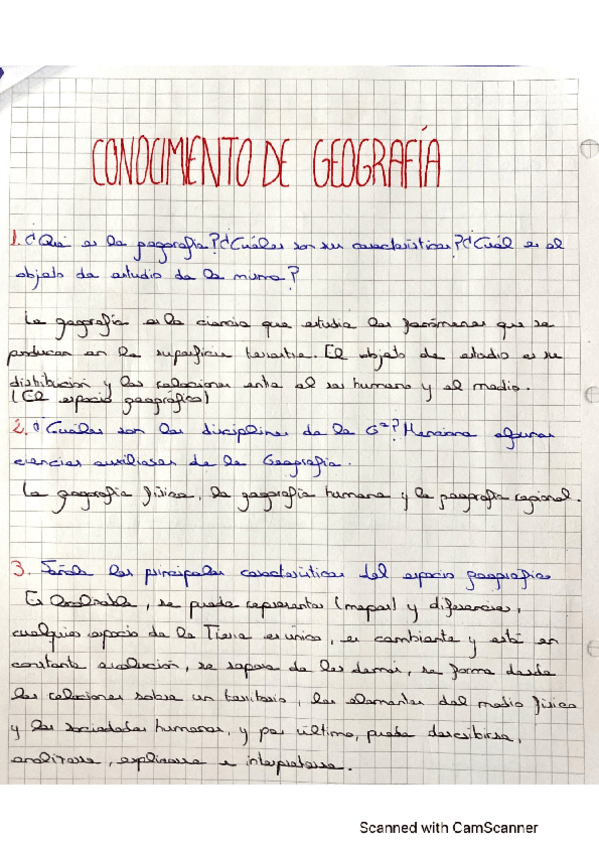 CONOCIMIENTO DE GEOGRAFÍA
1. ¿Qué es la geografía? ¿Cuáles son sus características? ¿Cuál es el
objeto de estudio de la misma?
La geografía es la ciencia que estudia los fenómenos que se
producen en la superficie terrestre. El objeto de estudio es su
distribución y las relaciones entre el ser humano y el medio.
(El espacio geográfico)
2. ¿Cuáles son las disciplinas de la Gª? Menciona algunas
ciencias auxiliares de la Geografía.
La geografía física, la geografía humana y la geografía regional.
3. Señala las principales características del espacio geográfico
Es localizable, se puede representar (mapas) y diferenciar,
cualquier espacio de la Tierra es único, es cambiante y está en
constante evolución, se separa de los demás, se forma desde
las relaciones sobre un territorio, los elementos del medio físico
y las sociedades humanas, y por último, puede describirse,
analizarse, explicarse e interpretarse.
Scanned with CamScanner